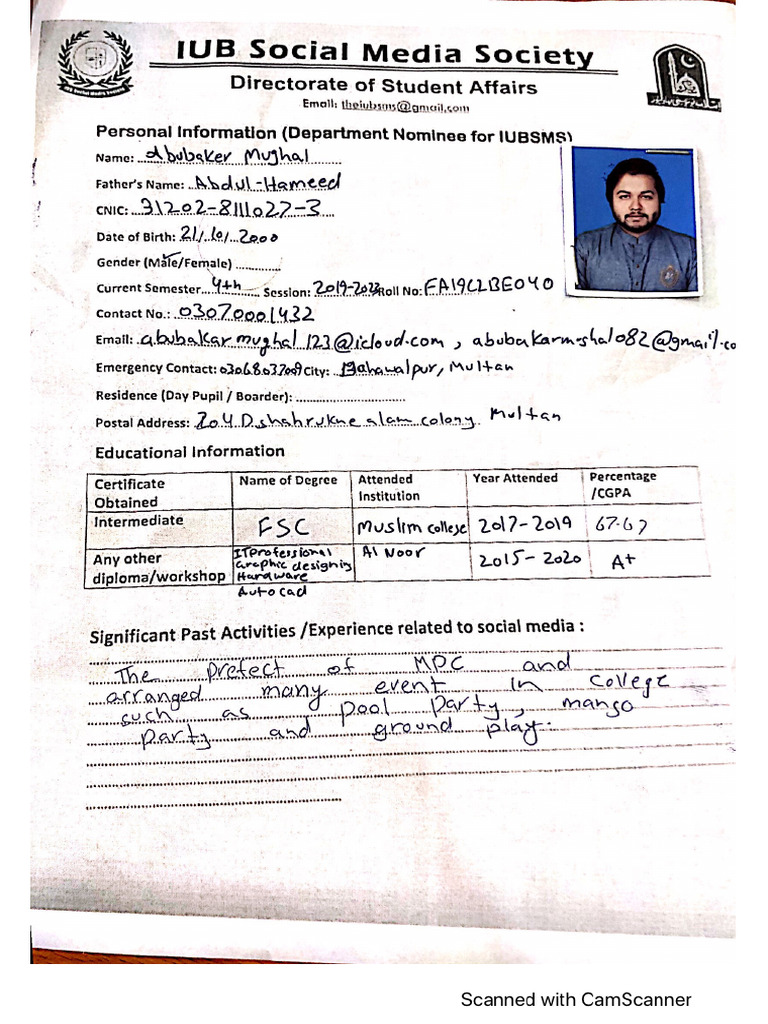 IUB Social Media Society
Directorate of Student Affairs
Email: theiubsms@gmail.com
Personal Information (Department Nominee for IUBSMS)
Name: Abubaker Mughal
Father's Name: Abdul-Hameed
CNIC: 31202-8111027-3
Date of Birth: 21/10/2000
Gender (Male/Female)
Current Semester 4th Session: 2019-2023 Roll No: FA19C2BE040
Contact No.: 03070001432
Email: abubakarmughal123@icloud.com, @gmail.co
Emergency Contact: City: Bahawalpur, Multan
Residence (Day Pupil / Boarder):
Postal Address: 204 D shahrukne alam colony Multan
Educational Information
Certificate Obtained Name of Degree Attended Institution Year Attended Percentage /CGPA
Intermediate FSC Muslim college 2017-2019 67.67
Any other diploma/workshop ITProfessional Graphic designing Hardware Autocad Al Noor 2015-2020 A+
Significant Past Activities /Experience related to social media :
The prefect of MPC and
arranged many event in College
such as pool party, mango
party and ground play.
Scanned with CamScanner